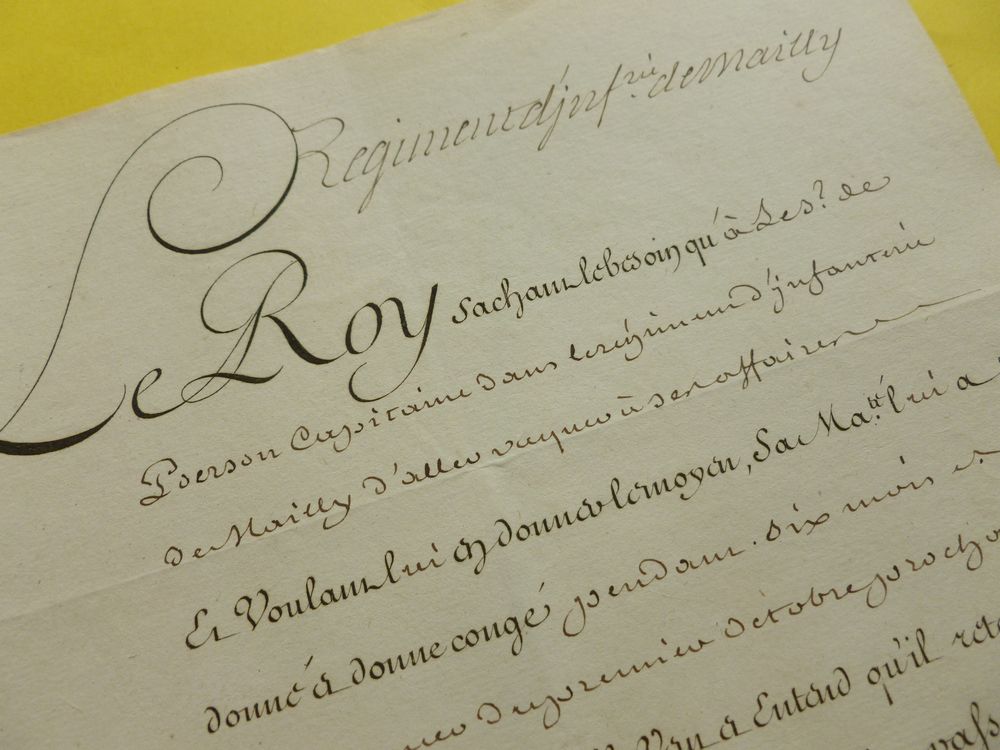 Regiment d'jnf.rie de Mailly
Le Roy sachant le besoin qu'à Le sr. de
Pierson Capitaine dans le regiment d'jnfanterie
de Mailly d'aller vaquer à ses affaires
Et Voulant lui en donner le moyen, Sa Ma.té lui a
donné et donne congé pendant six mois et
du premier d'octobre procha
Van a Entend qu'il